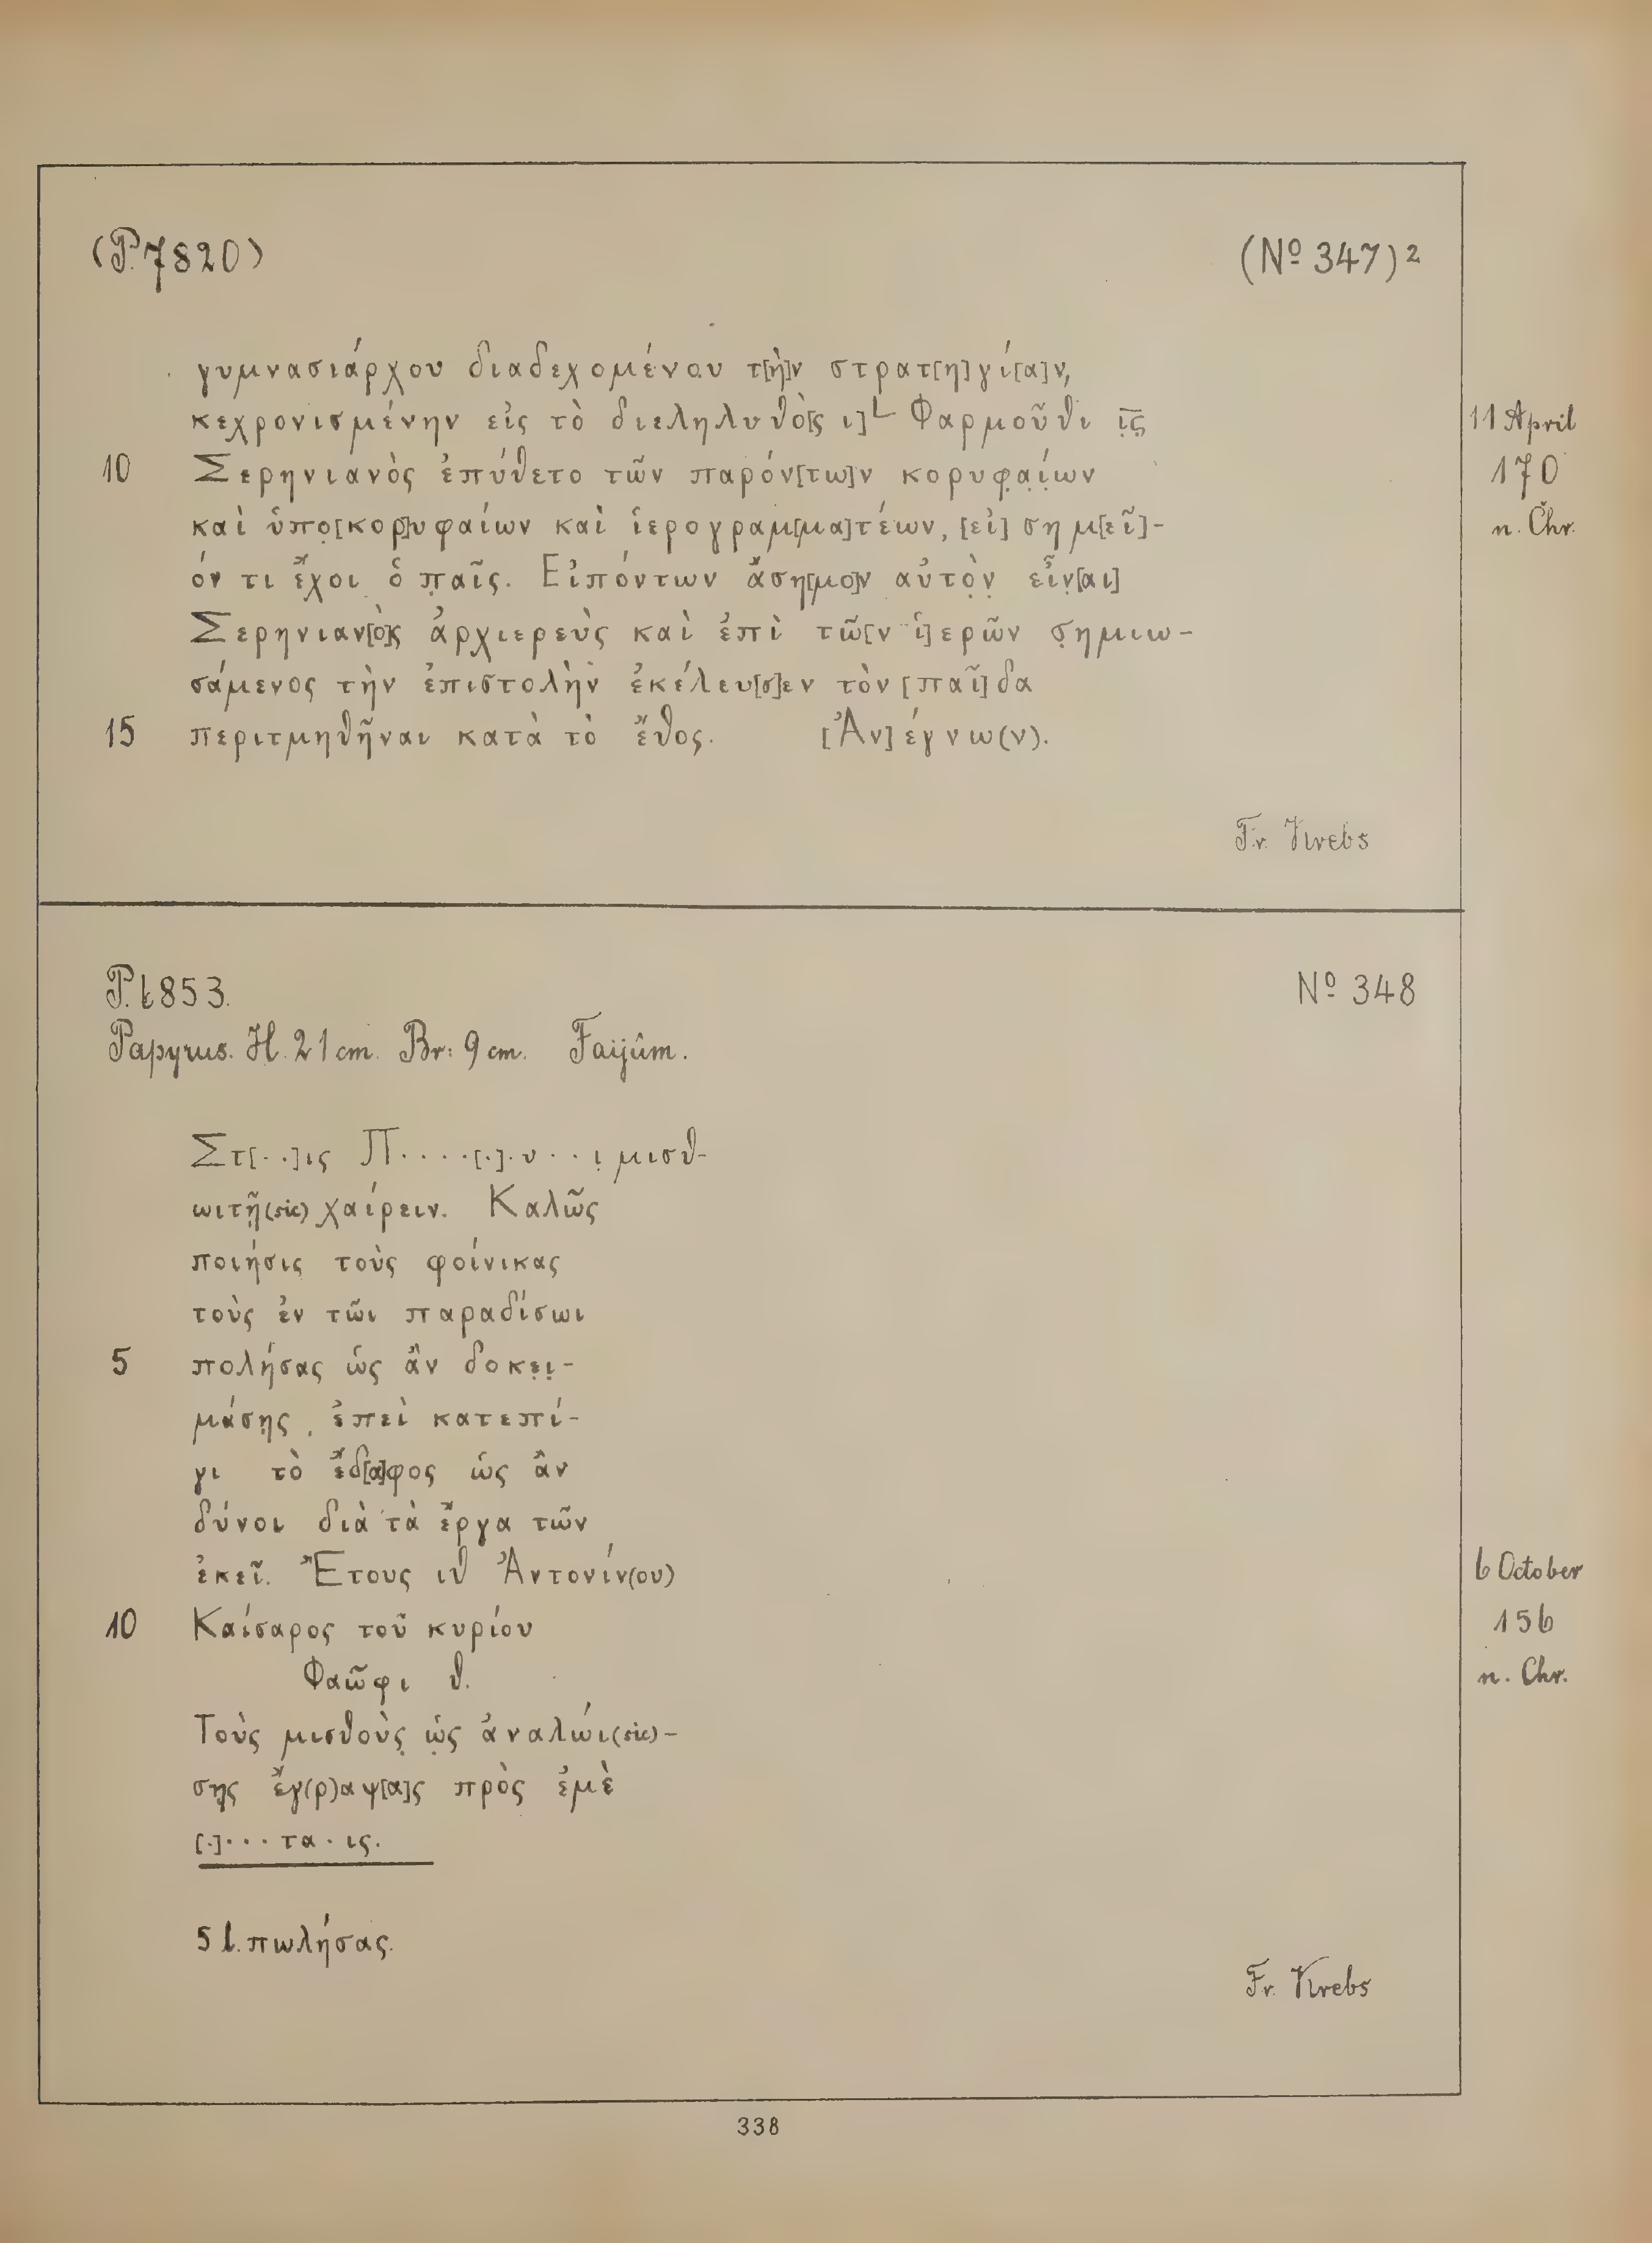 (P. 7820) (Nº 347)²
γυμνασιάρχου διαδεχομένου τ[ὴ]ν στρατ[η]γί[α]ν,
κεχρονισμένην εἰς τὸ διεληλυθὸ[ς ι]L Φαρμοῦθι ι̣ς̣̅ 11 April
10 Σερηνιανὸς ἐπύθετο τῶν παρόν[τω]ν κορυφ̣α̣ί̣ων 170
καὶ ὑπο̣[κορ]υφαίων καὶ ἱερογραμ[μα]τέων, [εἰ] σημ[εῖ]- n. Chr.
όν τι ἔχοι ὁ π̣αῖς. Εἰπόντων ἄση[μο]ν αὐτὸ̣ν̣ εἶν̣[αι]
Σερηνιαν[ὸ]ς ἀρχιερεὺς καὶ ἐπὶ τῶ[ν ἱ]ερῶν σ̣ημιω-
σάμενος τὴν ἐπιστολὴν ἐκέλευ[σ]εν τὸν [παῖ]δα
15 περιτμηθῆναι κατὰ τὸ ἔθος. [Ἀν]έγνω(ν).
Fr. Krebs
P. 6853. Nº 348
Papyrus. H. 21 cm. Br: 9 cm. Faijûm.
Στ[··]ις Π····[·]·υ··ι̣ μισθ-
ωιτῇ(sic) χαίρειν. Καλῶς
ποιήσις τοὺς φοίνικας
τοὺς ἐν τῶι παραδίσωι
5 πολήσας ὡς ἂν δοκε̣ι̣-
μάσῃς, ἐπεὶ κατεπί-
γι τὸ ἔδ[α]φος ὡς ἂν
δύνοι διὰ τὰ ἔργα τῶν
ἐκεῖ. Ἔτους ιθ Ἀντονίν(ου) 6 October
10 Καίσαρος τοῦ κυρίου 156
Φαῶφι θ. n. Chr.
Τοὺς μισθοὺς̣ ὡ̣ς ἀναλώι(sic)-
σῃς ἔγ(ρ)αψ[α]ς πρὸς ἐμὲ
[·]···τα·ις.
5 l. πωλήσας.
Fr. Krebs
338